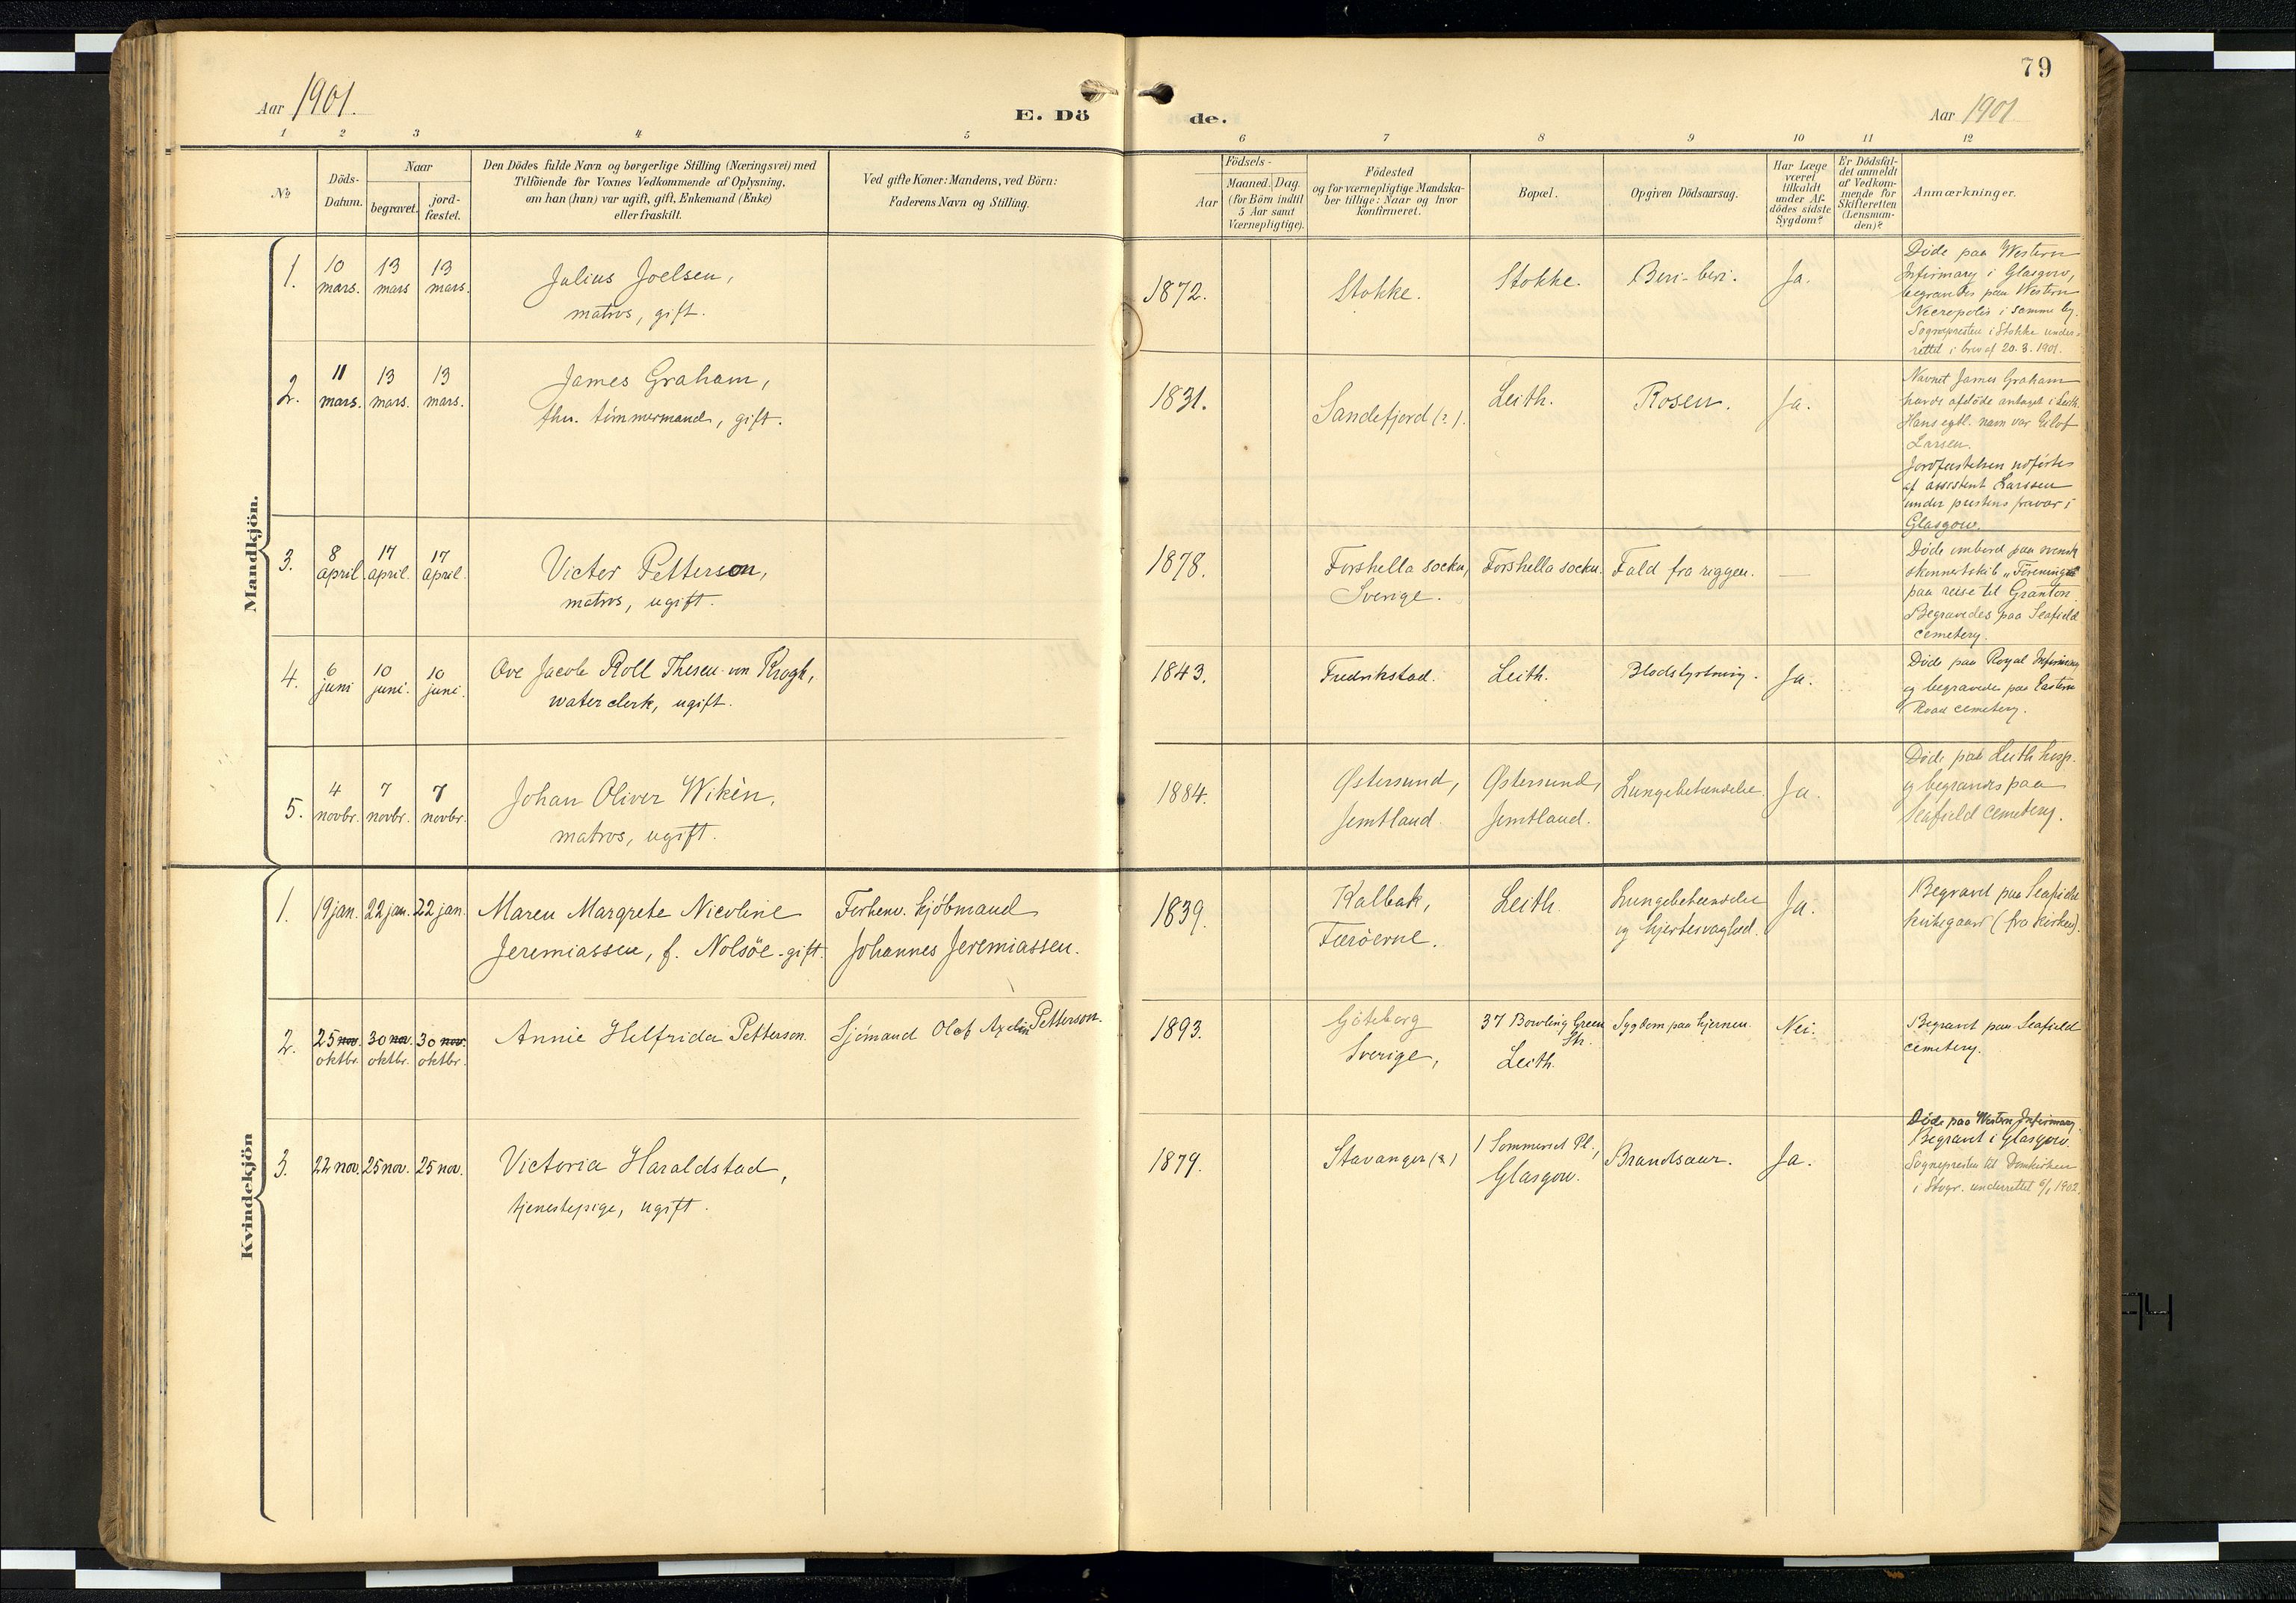 79
Aar 1901.
E. Dö
de.
Aar 1901
1 2 3 4 5 6 7 8 9 10 11 12
No.
Döds-
Datum.
Naar
begravet.
jord-
fæstet.
Den Dödes fulde Navn og borgerlige Stilling (Næringsvei) med
Tilföiende for Voxnes Vedkommende af Oplysning,
om han (hun) var ugift, gift, Enkemand (Enke)
eller fraskilt.
Ved gifte Koner: Mandens, ved Börn:
Faderens Navn og Stilling.
Födsels-
Aar
Maaned. Dag.
(for Börn indtil
5 Aar samt
Værnepligtige).
Födested
og for værnepligtige Mandska-
ber tillige: Naar og hvor
konfirmeret.
Bopæl.
Opgiven Dödsaarsag.
Har Læge
været
tilkaldt
under Af-
dödes sidste
Sygdom?
Er Dödsfal-
det anmeldt
af Vedkom-
mende for
Skifteretten
(Lensman-
den)?
Anmærkninger.
Mandkjön.
1.
10
mars.
13
mars
13
mars.
Julius Joelsen,
matros, gift.
1872.
Stokke.
Stokke.
Beri-beri.
Ja.
Døde paa Western
Infirmary i Glasgow,
begravedes paa Western
Necropolis i samme by.
Sognepresten i Stokke under-
rettet i brev af 20.3.1901.
2.
11
mars.
13
mars.
13
mars.
James Graham,
fhv. tømmermand, gift.
1831.
Sandefjord (?).
Leith.
Rosen.
Ja.
Navnet James Graham
havde afdøde antaget i Leith.
Hans egtl. navn var Eilof
Larsen.
Jordfæstelsen udførtes
af assistent Larssen
under prestens fravær i
Glasgow.
3.
8
april
17
april.
17
april.
Victor Petterson,
matros, ugift.
1878.
Forshella socku,
Sverige.
Forshella socku.
Fald fra riggen.
—
Døde ombord paa svensk
skonnertskib „Föreningen
paa reise til Granton.
Begravedes paa Seafield
cemetery.
4.
6
juni
10
juni.
10
juni.
Ove Jacob Roll Thesen von Krogh,
water clerk, ugift.
1843.
Fredrikstad.
Leith.
Blodstyrtning.
Ja.
Døde paa Royal Infirmary
og begravedes paa Eastern
Road cemetery.
5.
4
novbr.
7
novbr.
7
novbr.
Johan Oliver Wikèn,
matros, ugift.
1884.
Østersund,
Jemtland.
Østersund,
Jemtland.
Lungebetændelse.
Ja.
Døde paa Leith hosp.
og begravdes paa
Seafield cemetery.
Kvindekjön
1.
19 jan.
22 jan.
22 jan.
Maren Margrete Nicoline
Jeremiassen, f. Nolsöe - gift.
Forhenv. kjøbmand
Johannes Jeremiassen.
1839.
Kalbak,
Færöerne.
Leith.
Lungebetændelse
og hjertesvaghed.
Ja.
Begravet paa Seafield
kirkegaard (fra kirken).
2.
25 nov.
oktbr.
30 nov.
oktbr.
30 nov.
oktbr.
Annie Helfrida Petterson.
Sjømand Olof Axelin Petterson.
1893.
Göteborg
Sverige,
37 Bowling Green
Str.
Leith.
Sygdom paa hjernen.
Nei.
Begravet paa Seafield
cemetery.
3.
22 nov.
25 nov.
25 nov.
Victoria Haraldstad,
tjenestepige, ugift.
1879.
Stavanger (?)
1 Sommerset Pl.,
Glasgow.
Brandsaar.
Ja.
Døde paa Western Infirmary
Begravet i Glasgow.
Sognepresten til Domkirken
i Stvgr. underrettet 6/1 1902.